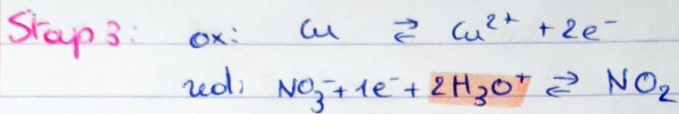 Stap 3: ox: Cu ⇄ Cu²⁺ + 2e⁻
red: NO₃⁻ + 1e⁻ + 2H₃O⁺ ⇄ NO₂